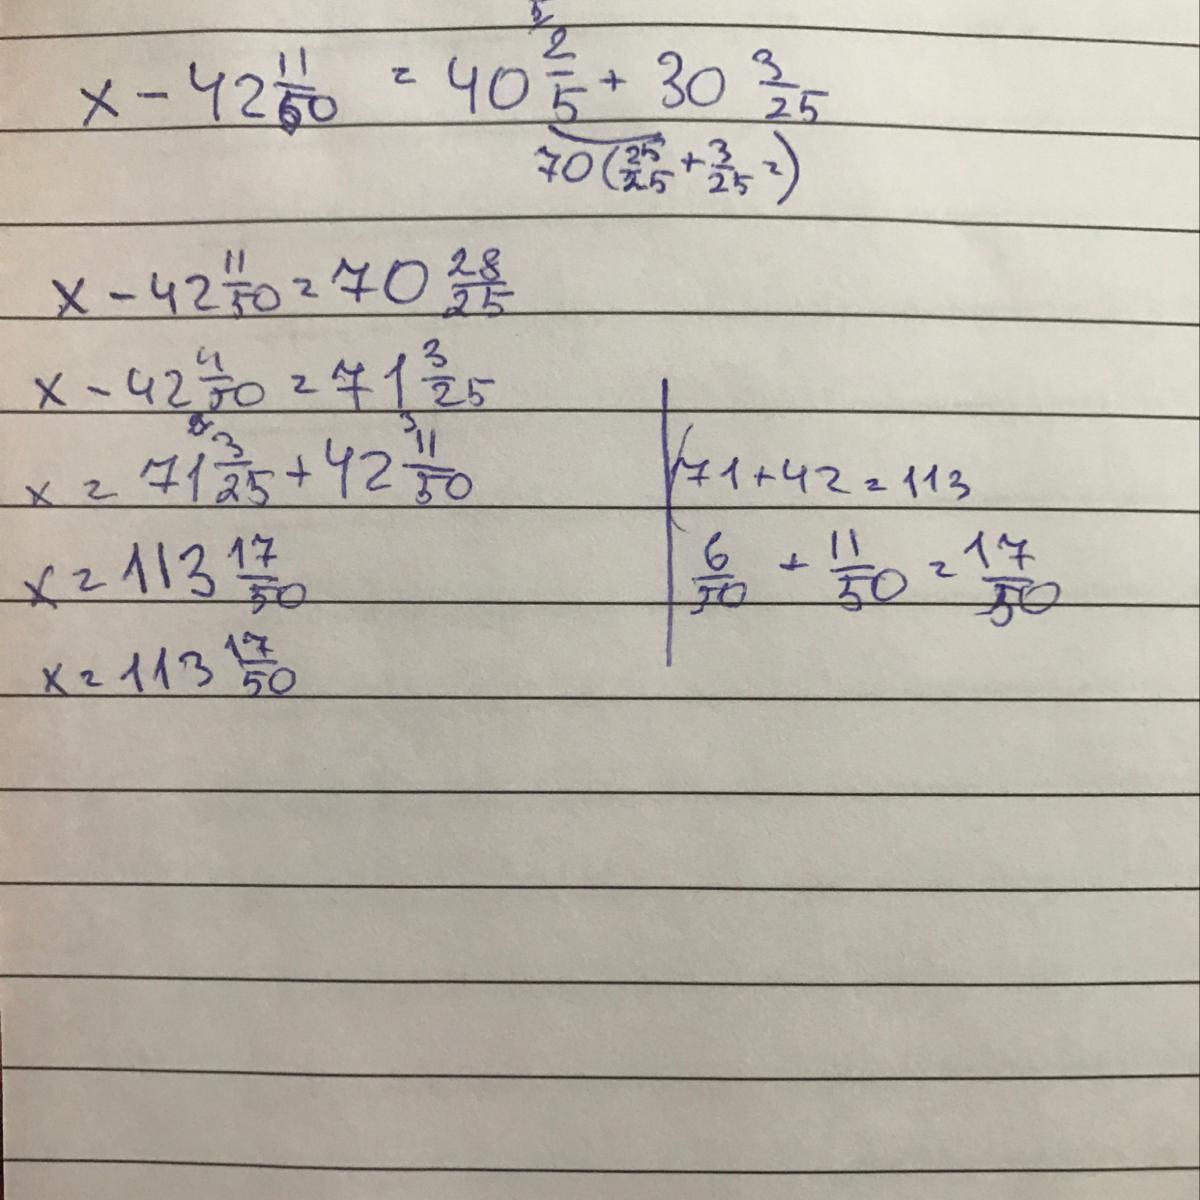 x - 42 11/50 = 40 2/5 + 30 3/25
70 (25/25 + 3/25 =)
x - 42 11/50 = 70 28/25
x - 42 11/50 = 71 3/25
x = 71 3/25 + 42 11/50
71 + 42 = 113
x = 113 17/50
6/50 + 11/50 = 17/50
x = 113 17/50